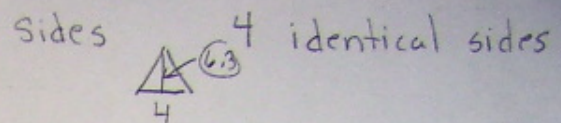 Sides 4 identical sides
6.3
4